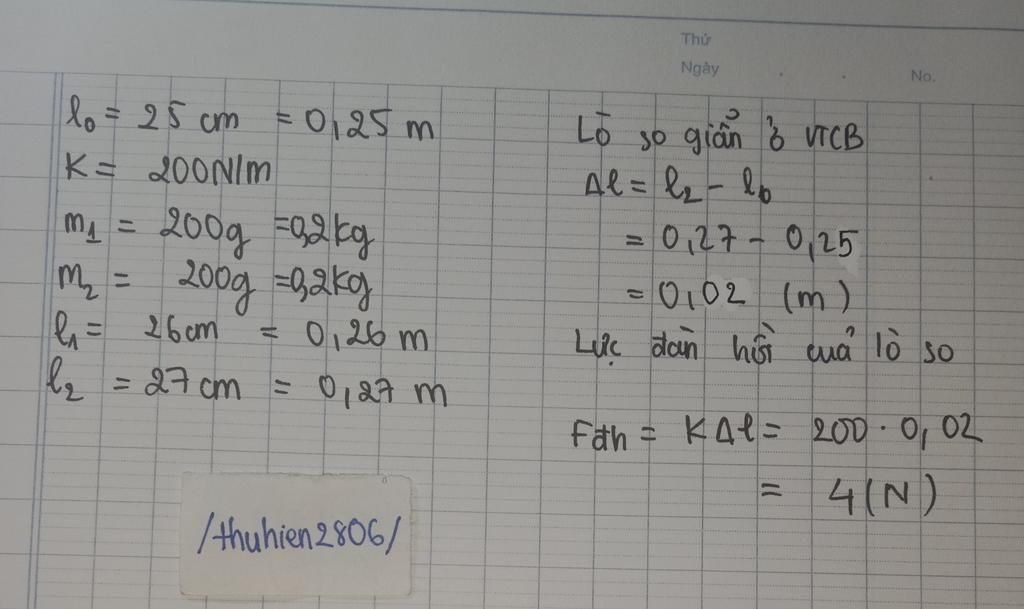 Thứ
Ngày
No.
l₀ = 25 cm = 0,25 m
K = 200N/m
m₁ = 200g =0,2kg
m₂ = 200g =0,2kg
l₁ = 26cm = 0,26 m
l₂ = 27 cm = 0,27 m
/thuhien2806/
Lò so giãn ở VTCB
Δl = l₂ - l₀
= 0,27 - 0,25
= 0,02 (m)
Lực đàn hồi cuả lò so
Fđh = KΔl = 200 · 0,02
= 4(N)